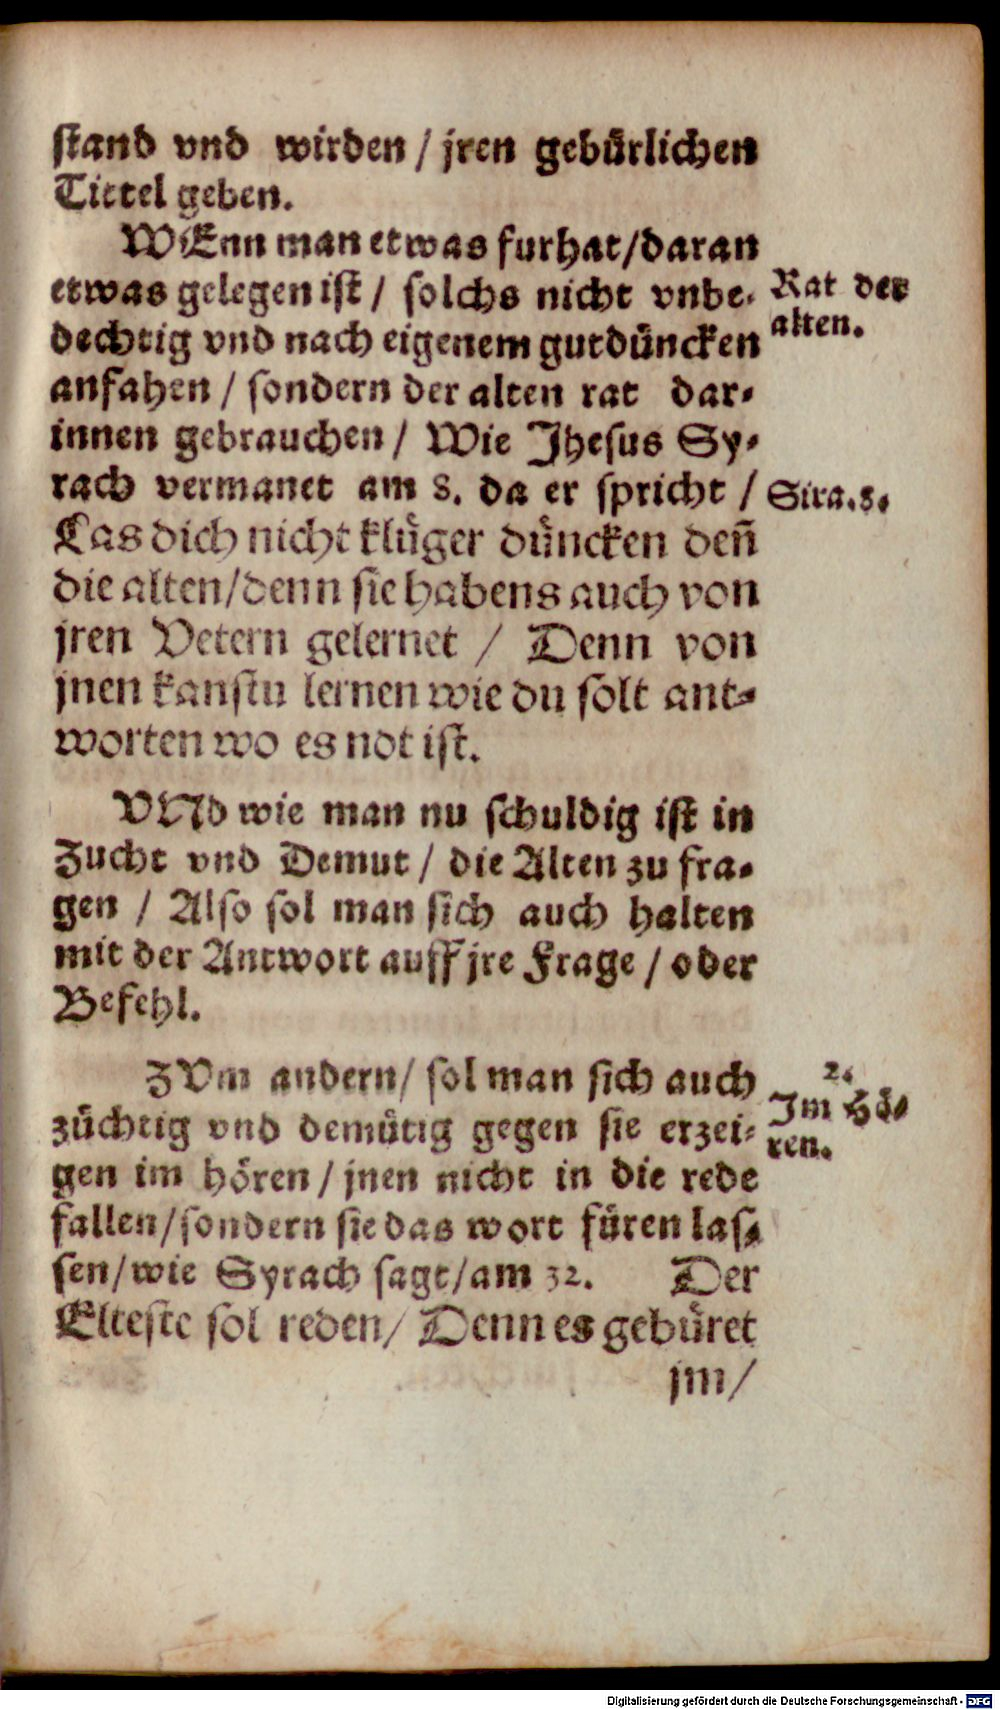 stand vnd wirden / jren gebürlichen
Tittel geben.
WEnn man etwas furhat/daran
etwas gelegen ist / solchs nicht vnbe-
dechtig vnd nach eigenem gutdüncken
anfahen / sondern der alten rat dar-
innen gebrauchen / Wie Jhesus Sy-
rach vermanet am 8. da er spricht /
Las dich nicht klüger düncken deñ
die alten/denn sie habens auch von
jren Vetern gelernet / Denn von
jnen kanstu lernen wie du solt ant-
worten wo es not ist.
Rat der
alten.
Sira.8.
VNd wie man nu schuldig ist in
Zucht vnd Demut / die Alten zu fra-
gen / Also sol man sich auch halten
mit der Antwort auff jre Frage / oder
Befehl.
ZVm andern/ sol man sich auch
züchtig vnd demütig gegen sie erzei-
gen im hören / jnen nicht in die rede
fallen/sondern sie das wort füren las-
sen/wie Syrach sagt/am 32. Der
Elteste sol reden/ Denn es gebüret
jm/
2.
Jm Hö-
ren.
Digitalisierung gefördert durch die Deutsche Forschungsgemeinschaft - DFG